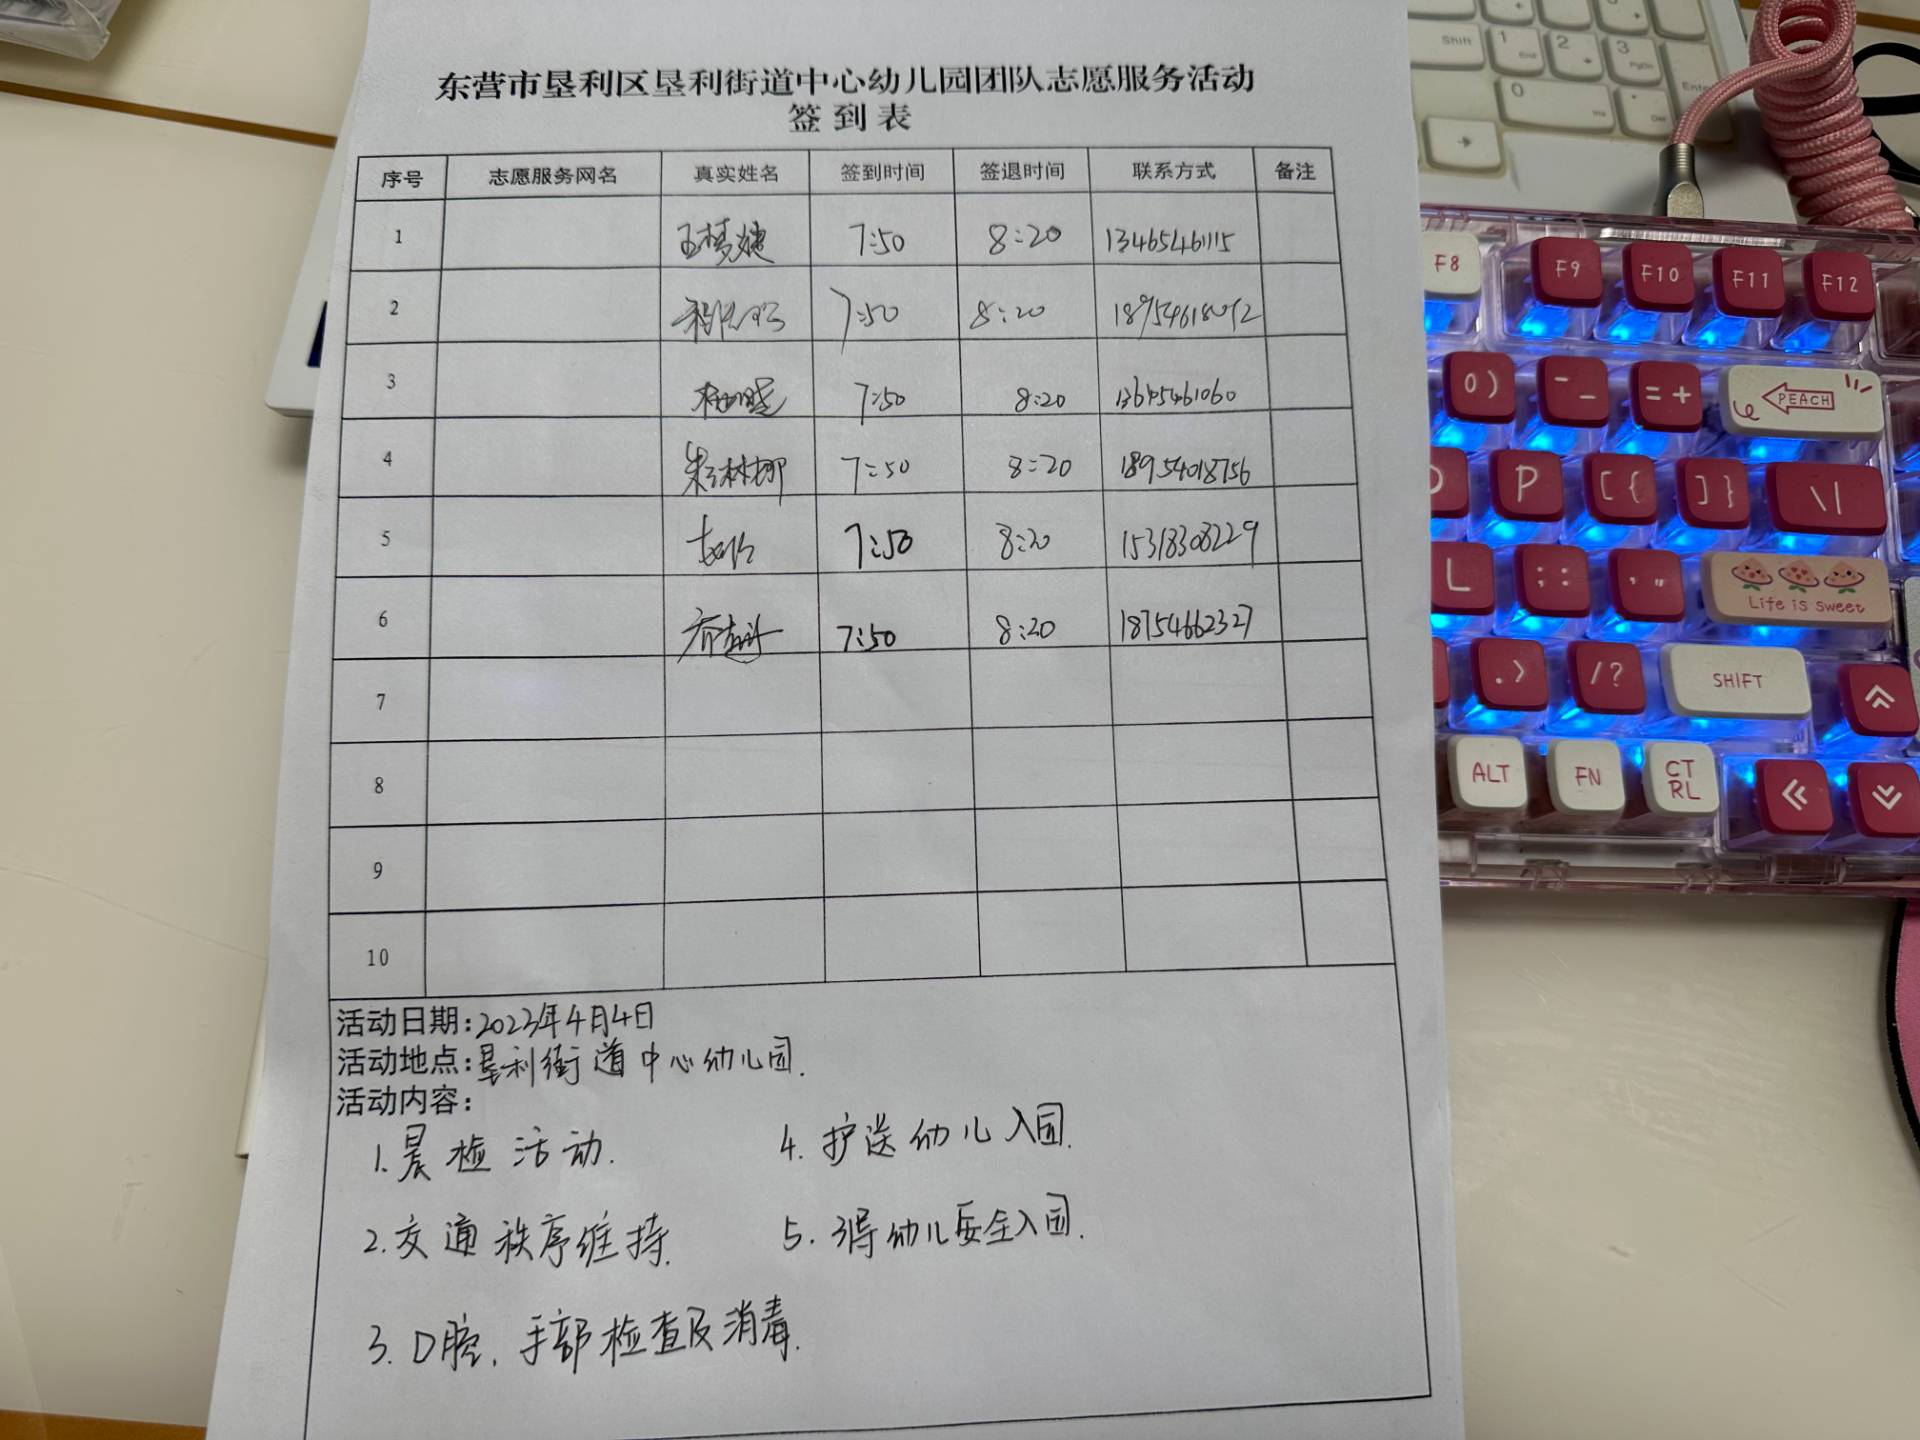 东营市垦利区垦利街道中心幼儿园团队志愿服务活动
签到表
序号 志愿服务网名 真实姓名 签到时间 签退时间 联系方式 备注
1 王梦婕 7:50 8:20 13465461115
2 7:50 8:20
3 7:50 8:20
4 7:50 8:20
5 7:50 8:20 15318308229
6 7:50 8:20 18754662327
7
8
9
10
活动日期:2023年4月4日
活动地点:垦利街道中心幼儿园.
活动内容:
1.晨检活动.
4.护送幼儿入园.
2.交通秩序维持.
5.幼儿安全入园.
3.口腔.手部检查及消毒.
Shift 1 End 2 3 PgDn
0 Ins Del Enter
F8 F9 F10 F11 F12
0) -_ =+ PEACH
P [{ ]} \|
L ;: Life is sweet
.> /? SHIFT
ALT FN CTRL